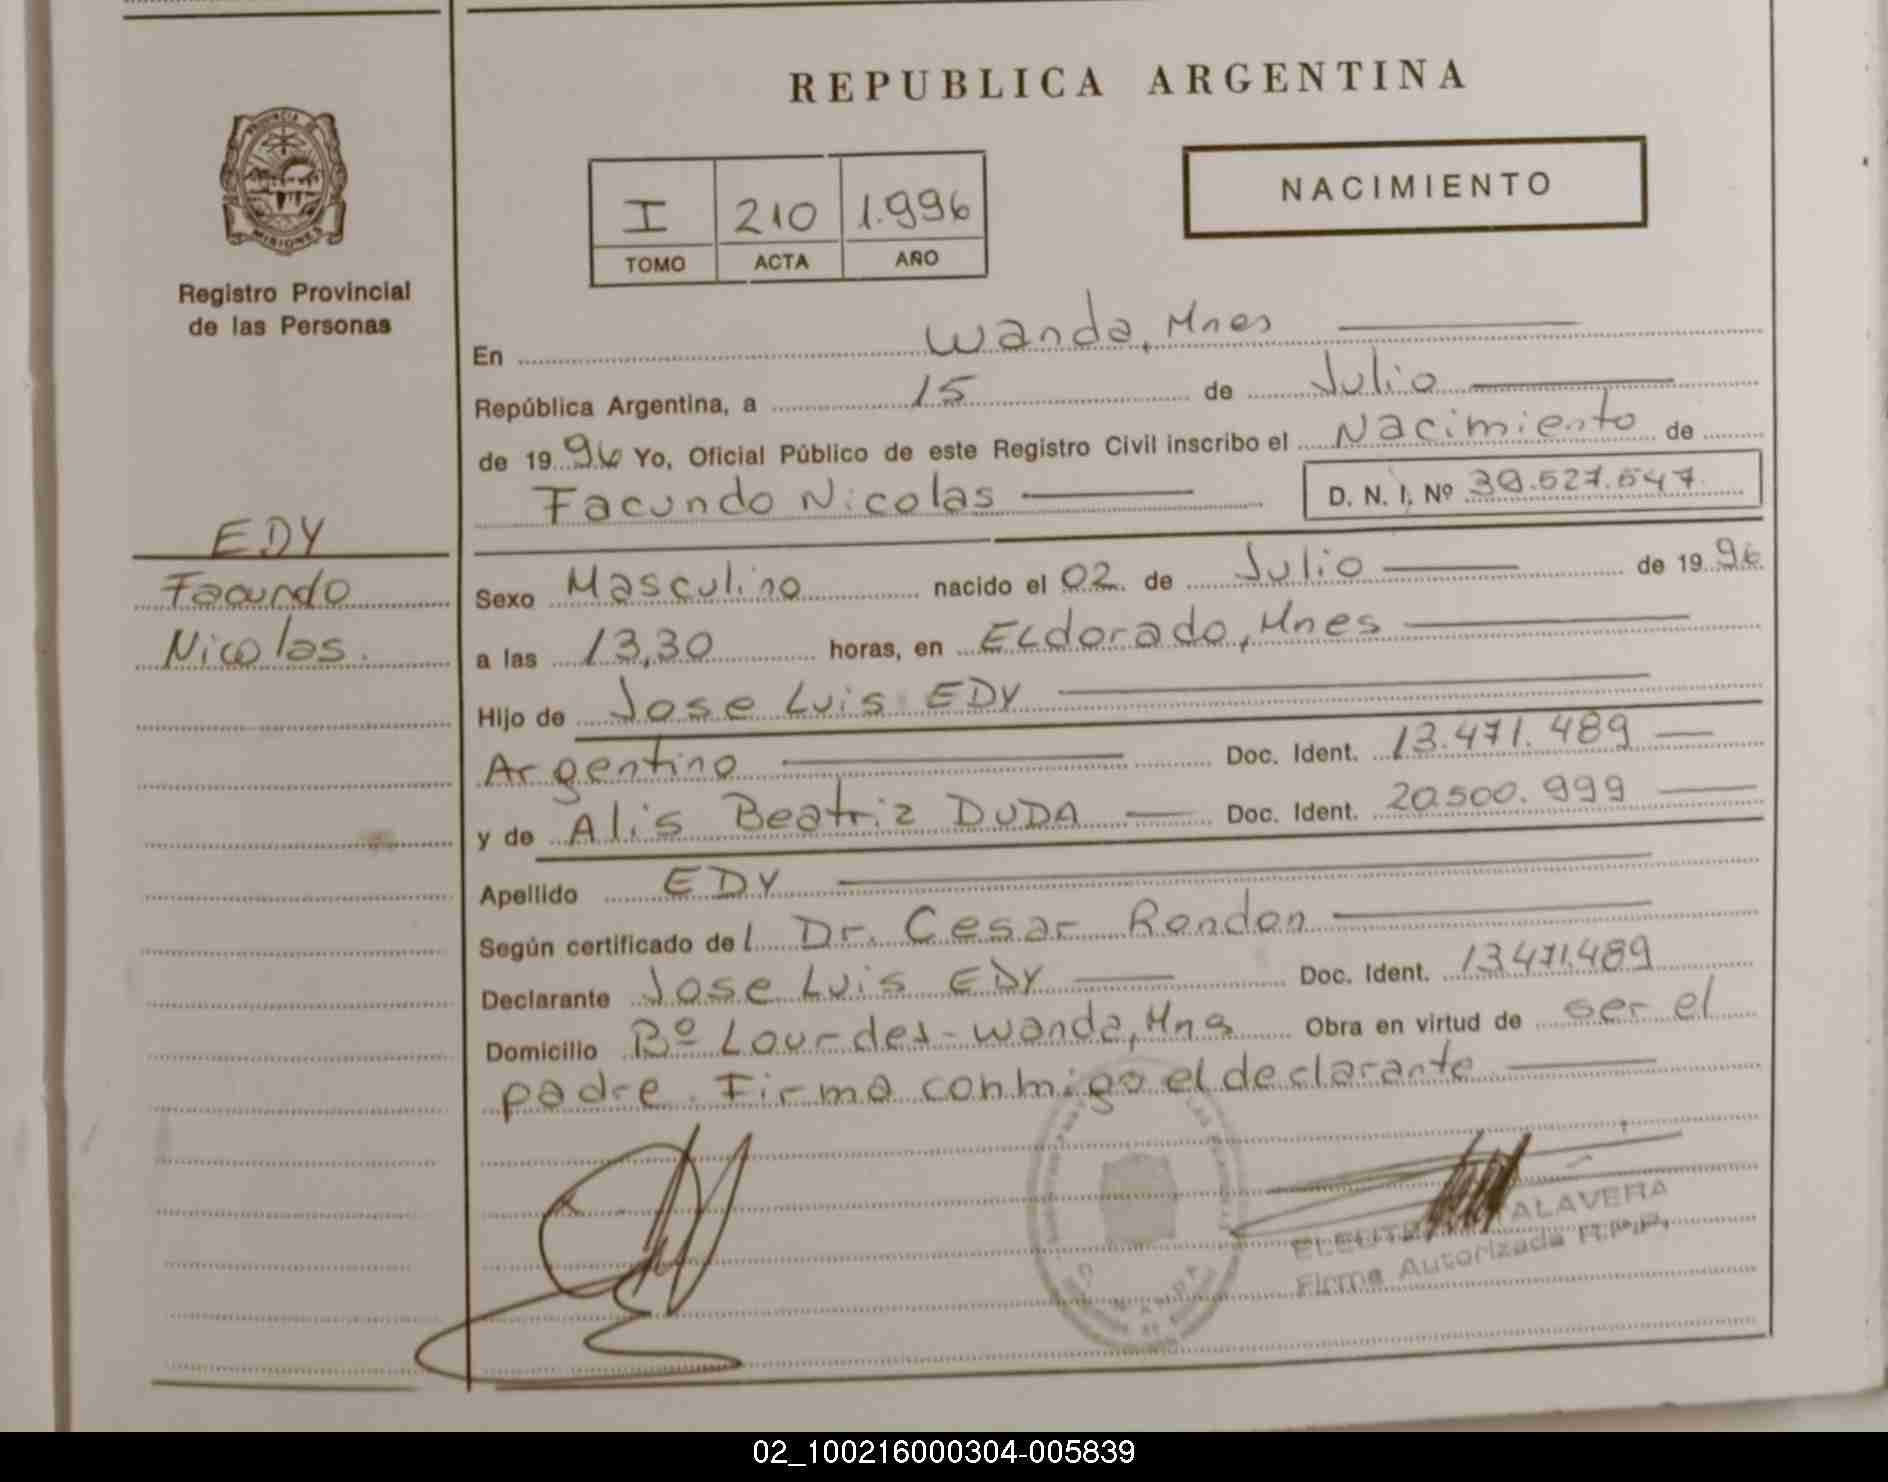 REPUBLICA ARGENTINA
PROVINCIA DE
MISIONES
Registro Provincial
de las Personas
I 210 1.996
TOMO ACTA AÑO
NACIMIENTO
En Wanda, Mnes
República Argentina, a 15 de Julio
de 1996 Yo, Oficial Público de este Registro Civil inscribo el Nacimiento de
Facundo Nicolas D. N. I. Nº 39.527.547
EDY
Facundo
Nicolas.
Sexo Masculino nacido el 02 de Julio de 1996
a las 13,30 horas, en ELdorado, Mnes
Hijo de Jose Luis EDY
Argentino Doc. Ident. 13.471.489
y de Alis Beatriz DUDA Doc. Ident. 20.500.999
Apellido EDY
Según certificado del Dr. Cesar Rondon
Declarante Jose Luis EDY Doc. Ident. 13.471.489
Domicilio Bº Lourdes - Wanda, Mns Obra en virtud de ser el
padre. Firma conmigo el declarante
WANDA
ALAVERA
Firma Autorizada R.P.P.
02_100216000304-005839